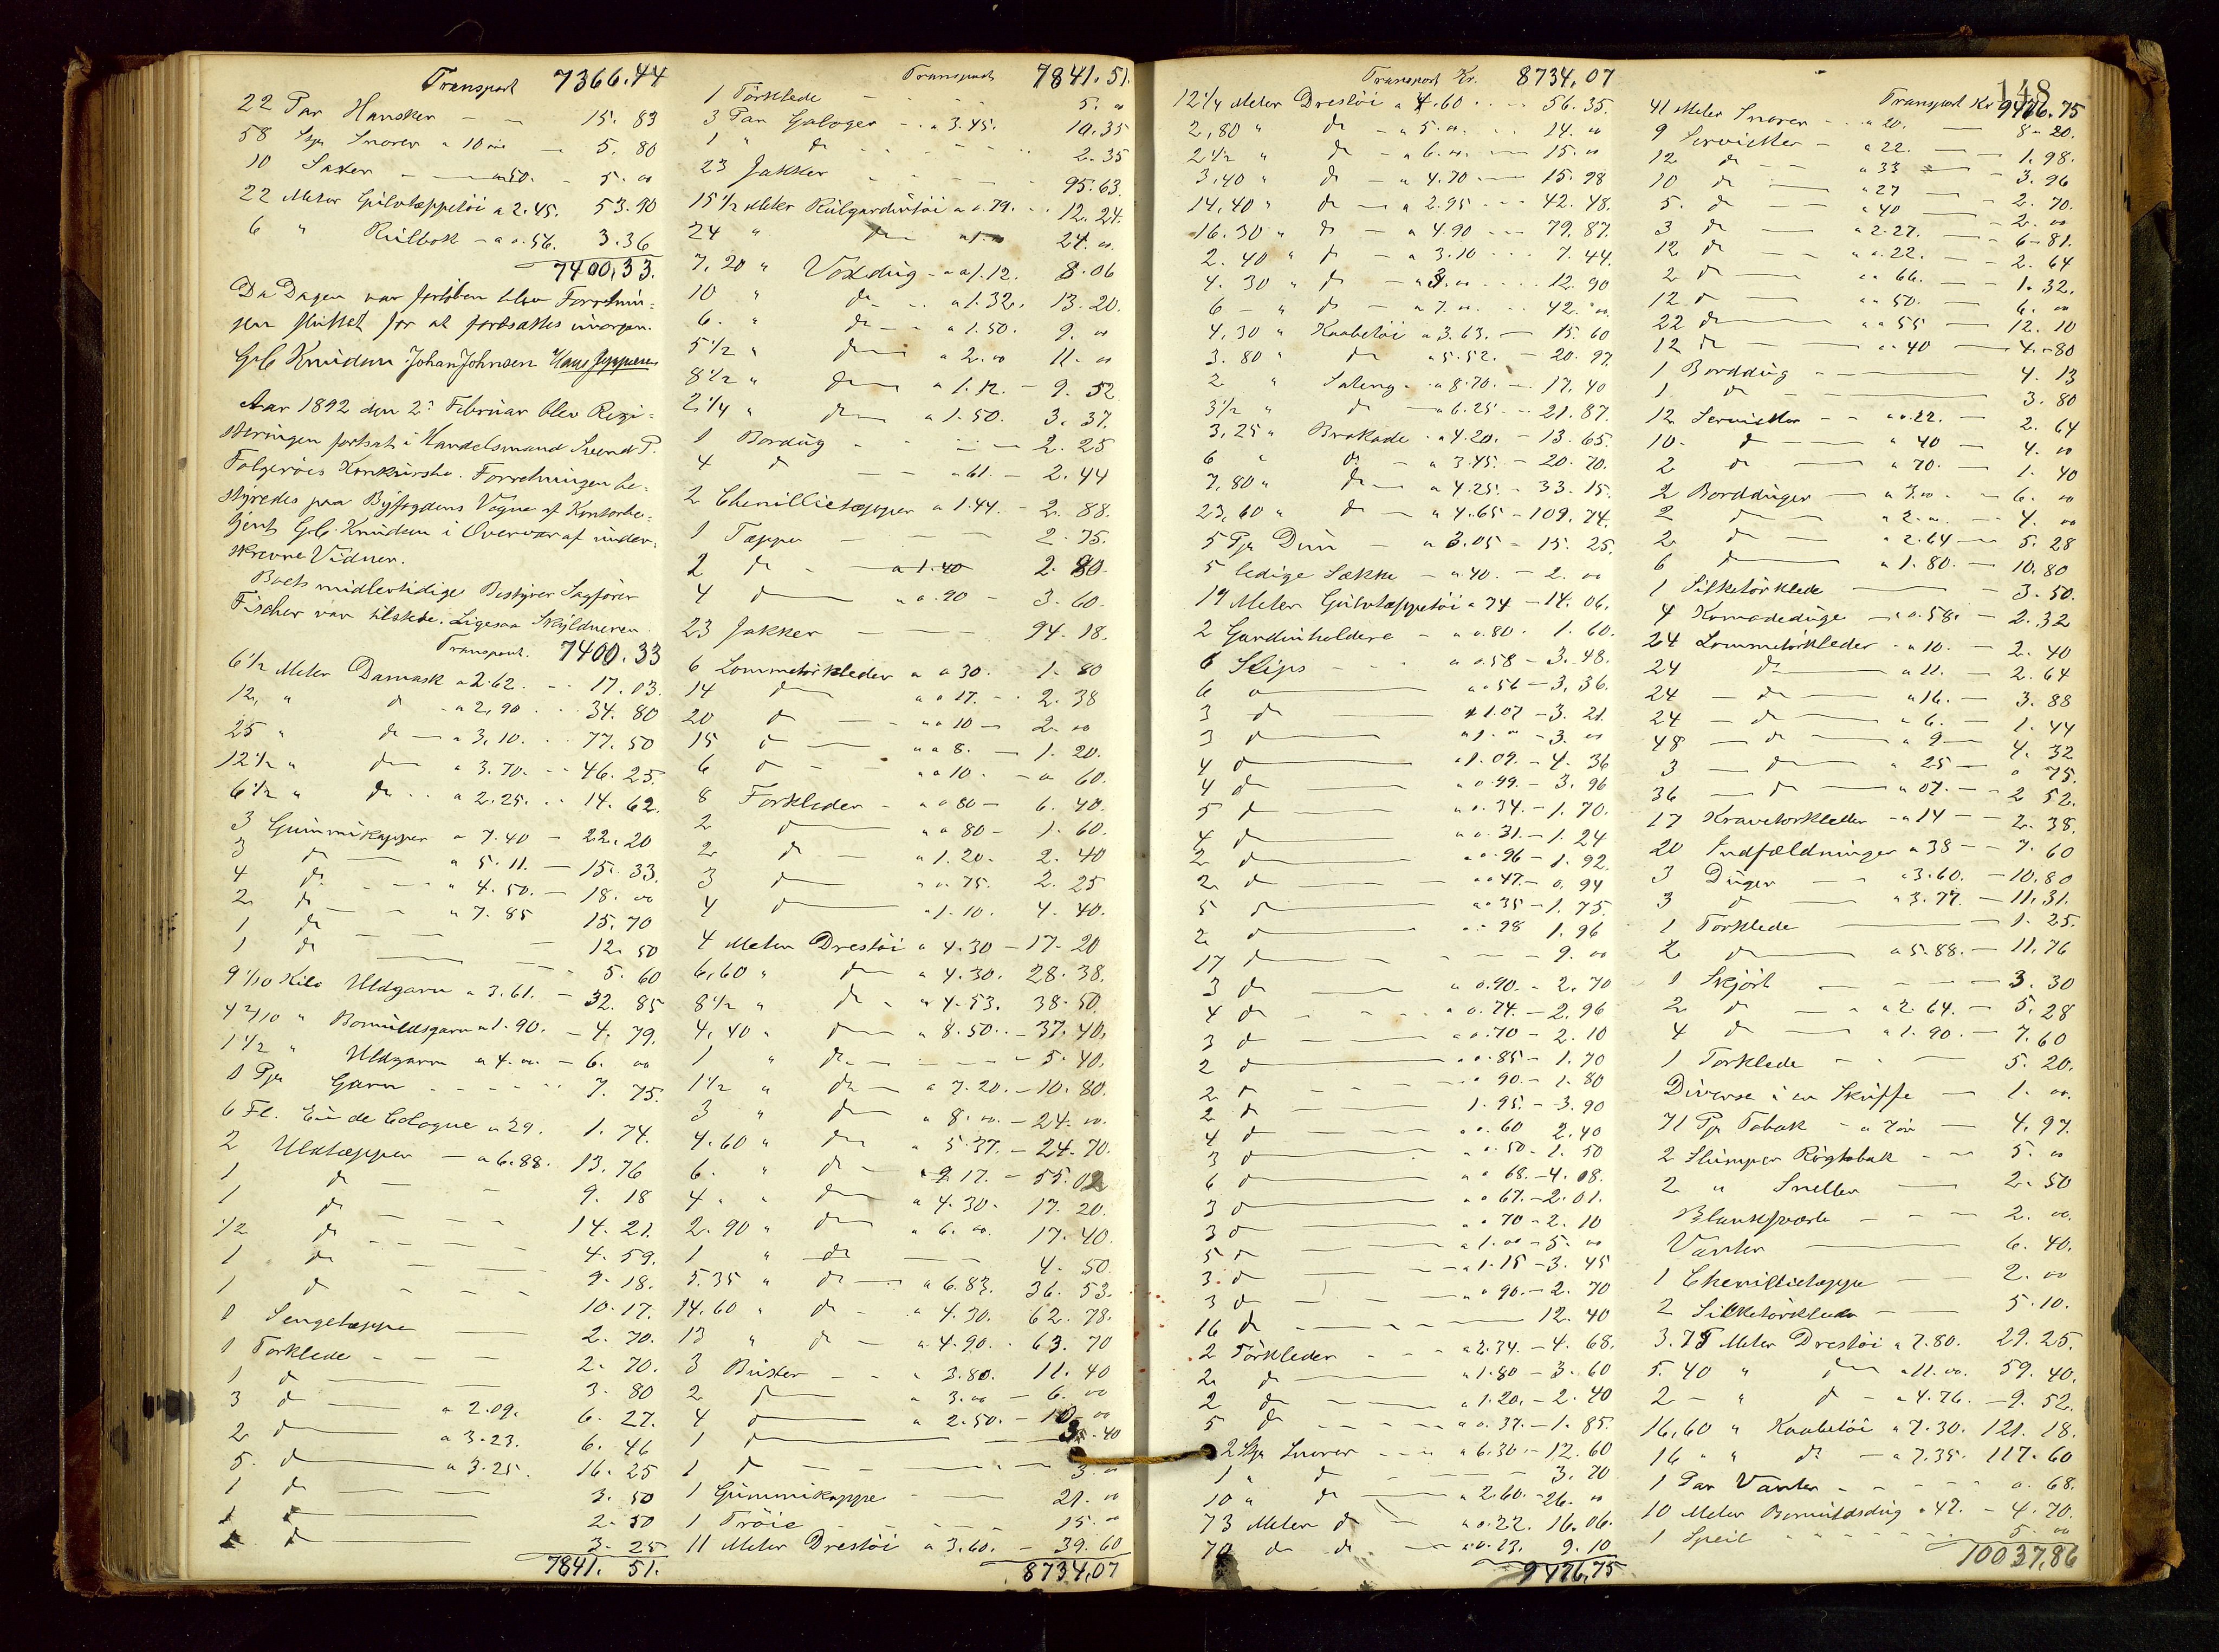 Transport 7366.44
22 Par Hansker - - 15. 83
58 Stk Snorer a 10 øre - 5. 80
10 Saxer - - a 50. - 5. 00
22 Meter Gulvtæppetøi a 2.45. 53.90
6 " Rulbok - a 0.56. 3.36
7400,33.
Da Dagen var forløben blev Forretnin=
gen sluttet for at fortsættes imorgen.
G.C. Knudsen Johan Johnsen Hans Jeppesen
Aar 1892 den 2den Februar blev Regi=
streringen fortsat i Handelsmand Svend P.
Folgerøes Konkursbo. Forretningen be=
styredes paa Byfogdens Vegne af Kontorbe=
tjent G.C. Knudsen i Overvær af under=
skrevne Vidner.
Boets midlertidige Bestyrer Sagfører
Fischer var tilstede. Ligesaa Skyldneren.
Transport. 7400.33
6 1/2 Meter Damask a 2.62. - - 17.03.
12, " d - a 2,90 . . 34. 80
25 " do - a 3,10. . . 77. 50
12 1/2 " do a 3.70. - - 46. 25.
6 1/2 " do . . a 2.25. . . 14. 62.
3 Gummikapper a 7.40 - 22.20
3 do - a 5.11. - 15. 33.
4 do - - a 4.50. - 18. 00
2 do - - a 7. 85 15.70
1 do - - - 12. 50
1 do - - - 5. 60
9 1/10 Kilo Uldgarn a 3.61. - 32. 85
4 2/10 " Bomuldsgarn a 1.90. - 4. 79.
1 1/2 " Uldgarn a 4.00 - 6. 00
1 Pk Garn - - - - 7. 75.
6 Fl. Eau de Cologne a 29. 1. 74.
2 Uldtæpper - a 6.88. 13. 76
1 do - - 9. 18
1 do - - - 14. 21.
1/2 do - - - - 4. 59.
1 do - - - 9. 18.
1 do - - - - 10. 17.
1 Sengetæppe - 2. 70.
1 Tørklede - - - 2. 70.
1 d - - 3. 80
3 d - a 2.09. 6. 27.
2 d - a 3.23. 6. 46
5. d - a 3.25. 16. 25
1 do - - 3. 50
1 d - 2. 50
1 d - 3. 25
7841. 51.
Transport 7841. 51.
1 Tørklede - - - - 5. 00
3 Par Galoger - . a 3.45. 10.35
1 " do - - - - 2. 35
23 Jakker - - - - 95.63.
15 1/2 Meter Rulgardintøi a 0.79. . . 12. 24.
24 " do a 1.00 24. 00
7, 20 " Voxdug - a 1.12. 8.06
10 " do . . a 1.32. 13. 20.
6. " do - - a 1.50. 9. 00
5 1/2 " do - a 2.00 11. 00
8 1/2 " do - a 1.12. - 9. 52
2 1/4 " do - a 1.50. 3. 37.
1 Bordug - - - - 2. 25
4 d - - a 61. - 2. 44
2 Chenillietæpper a 1.44. - 2. 88.
1 Tæppe - - - 2. 75.
2 do - - a 1.40 2. 80
4 d - a 0.90 - 3. 60.
23 Jakker - - - 94. 18.
6 Lommetørkleder a a 30. 1. 80
14 do a 0 17. - 2. 38
20 d - - a 10 - 2. 00
15 d - a 8. - 1. 20.
6 d - - a 10. - 0 60.
8 Forkleder - a 0 80 - 6. 40.
2 d - a 80 - 1. 60.
2 do - a 1.20. 2. 40
3 d - a 0.75. 2. 25
4 d - a 1.10. 4. 40.
4 Meter Drestøi a 4.30 - 17. 20
6,60 " do a 4.30. 28. 38.
8 1/2 " do - a 4.53. 38. 50.
4, 40 " do a 8.50. . 37. 40,
1 " do - - - - 5. 40.
1 1/2 " do - a 7.20. - 10. 80.
3 " do a 8. 00 - 24. 00.
4.60 " do a 5.37. - 24.70.
6. " do - a 9.17. - 55.02
4. " do a 4.30. 17. 20.
2. 90 " do - a 6. 00. 17. 40.
1 " do - - 4. 50.
5.35 " do - a 6.83. 36. 53.
14. 60 " do - a 4.30. 62. 78.
13 " do - a 4.90. . 63. 70
3 Buxer - - a 3.80. 11. 40
2 d - a 3.00 - 6. 00
4 d - a 2.50. - 10. 00
1 d - - 3. 40
1 d - - - - 3. 00
1 Gummikappe - - 21. 00
1 Trøie - - - - 15. 00
11 Meter Drestøi a 3.60. - 39. 60
8734,07
148
Transport Kr. 8734,07
12 1/4 Meter Drestøi a 4.60 . . - 56. 35.
2,80 " do - a 5.00. . . 14. 00
2 1/2 " do - a 6.00. - - 15. 00
3,40 " do - a 4.70 - - 15. 98
14,40 " do - a 2.95 - - - 42. 48.
16.30 " do - a 4.90 - - - 79, 87.
2. 40 " do - a 3.10 - - - 7. 44.
4. 30 " do - a 3.00 - - - 12. 90
6 - " do - a 7.00 . . 42. 00.
4,30 " Kaabetøi a 3.63. - 15. 60
3. 80 " do a 5.52. - 20. 97.
2 " Sateng. . a 8.70. - 17. 40
3 1/2 " do - a 6.25. - 21. 87.
3,25 " Brokade. a 4.20. - 13. 65.
6 " do - a 3.45. - 20. 70.
7,80 " do - a 4.25. - 33. 15.
23,60 " do - a 4.65 - 109. 74.
5 Pk Dun - a 3.05 - 15. 25.
5 ledige Sække - a 40. - 2. 00
19 Meter Gulvtæppetøi a 74 - 14. 06.
2 Gardinholdere - a 0.80. 1. 60.
6 Slips - - - a 0.58 - 3. 48.
6 d - a 0 56 - 3, 36.
3 do - a 1.07 - 3. 21.
3 d - a 1. 00 - 3. 00
4 d - a 1.09. - 4. 36
4 do - a 0.99. - 3. 96
5 do - a 0. 34. - 1. 70.
4 do - a 0. 31. - 1. 24
2 do - a 0.96 - 1. 92.
2 d - a 0 47. - 0. 94
5 d - a 0 35 - 1. 75.
2 d - a 98 1. 96
17 do - - - - 9. 00
3 do - a 0.90. - 2. 70
4 do - - - a 0.74. - 2. 96
3 do - a 0.70 - 2. 10
2 d - a 0.85 - 1. 70
2 d - - - a 90. - 1. 80
2 d - 1. 95. - 3. 90
4 d - a 0. 60 2. 40
3 d - a 0. 50. 1. 50
6 d - a 0 68. - 4. 08.
3 d - a 0 67. - 2. 01.
3 d - a 0 70 - 2. 10
5 d - a 1.00 - 5. 00
3. d - a 1.15 - 3. 45
3 do - - - a 90. - 2. 70
16 do - - - - 12. 40
2 Tørkleder - - - a 2.34. - 4. 68.
2 do - a 1.80 - 3. 60
2 do - - a 1.20. - 2. 40
5 do - - - - a 0. 37. - 1. 85.
2 Stk Snorer - - - a 6.30. - 12. 60
1 " d - - - - 3. 70
10 " do - a 2.60. - 26. 00
73 Meter do - a 0.22. 16.06.
70 do do - a 0.13. 9. 10
9476,75
Transport Kr 9476.75
41 Meter Snorer - . . a 20. - 8 - 20.
9 Servietter - a 22. - 1. 98.
12 do - - a 33 - 3. 96
10 do - a 27 - 2. 70.
5. do - a 40 - 2. 00
3 do - a 2.27. - 6 - 81.
12 do - a 0.22. - 2. 64
2 d - a 66. - 1. 32.
12 d - a 50. - 6. 00
22 do - a 0 55 - 12. 10
12 do - a 40 - 4. 80
1 Borddug - - 4. 13
1 do - 3. 80
12 Servietter - - a 0.22. - 2. 64
10. d - a 40 - 4. 00
2 do - a 70. - 1. 40
2 Borddüger - a 3.00. - 6. 00
2 do - a 2.00. - 4. 00
2 do - a 2.64 - 5. 28
6 d - a 1.80. - 10. 80
1 Silketørklede - 3. 50.
4 Komodeduge - a 0.58. - 2. 32
24 Lommetørkleder - a 10. - 2. 40
24 do - a 11. - 2. 64
24 - do - a 16. - 3. 88
24 - do - a 6. - 1. 44
48 - do - a 9 - 4. 32
3 - do - a 25 - 0 75.
36 - do - a 07. - 2 52.
17 Kravetørkleder - a 14 - - 2. 38.
20 Indfældninger a 38 - - 7. 60
3 Duger - - a 3.60. - 10.80
3 d - a 3.77. - 11,31.
1 Tørklede - 1. 25.
2 d - a 5.88. - 11,76
1 Skjört - - - - 3. 30
2 d - a 2.64. - 5. 28
4 d - a 1.90. - 7. 60
1 Tørklede - - - 5. 20.
Diverse i en Skuffe - 1. 00.
71 Pk Tobak - a 7 øre - 4. 97.
2 Slumper Røgtobak - - 5. 00
2 " Sneller - 2. 50
Blanksværte - - - 2. 00.
Vanter - 6. 40.
1 Chenillietæppe - - 2. 00
2 Silketørkleder - - 5. 10.
3.75 Meter Drestøi a 7.80. 29. 25.
5. 40 " do a 11.00. 59. 40,
2 - " d - a 4.76. - 9. 52.
16,60 " Kaabetøi a 7.30. 121. 18.
16 " " do - a 7.35. 117. 60
1 Par Vanter - - - 0. 68.
10 Meter Bomuldsdug a 47. - 4. 70.
1 Speil - - - - 5. 00
10037,86